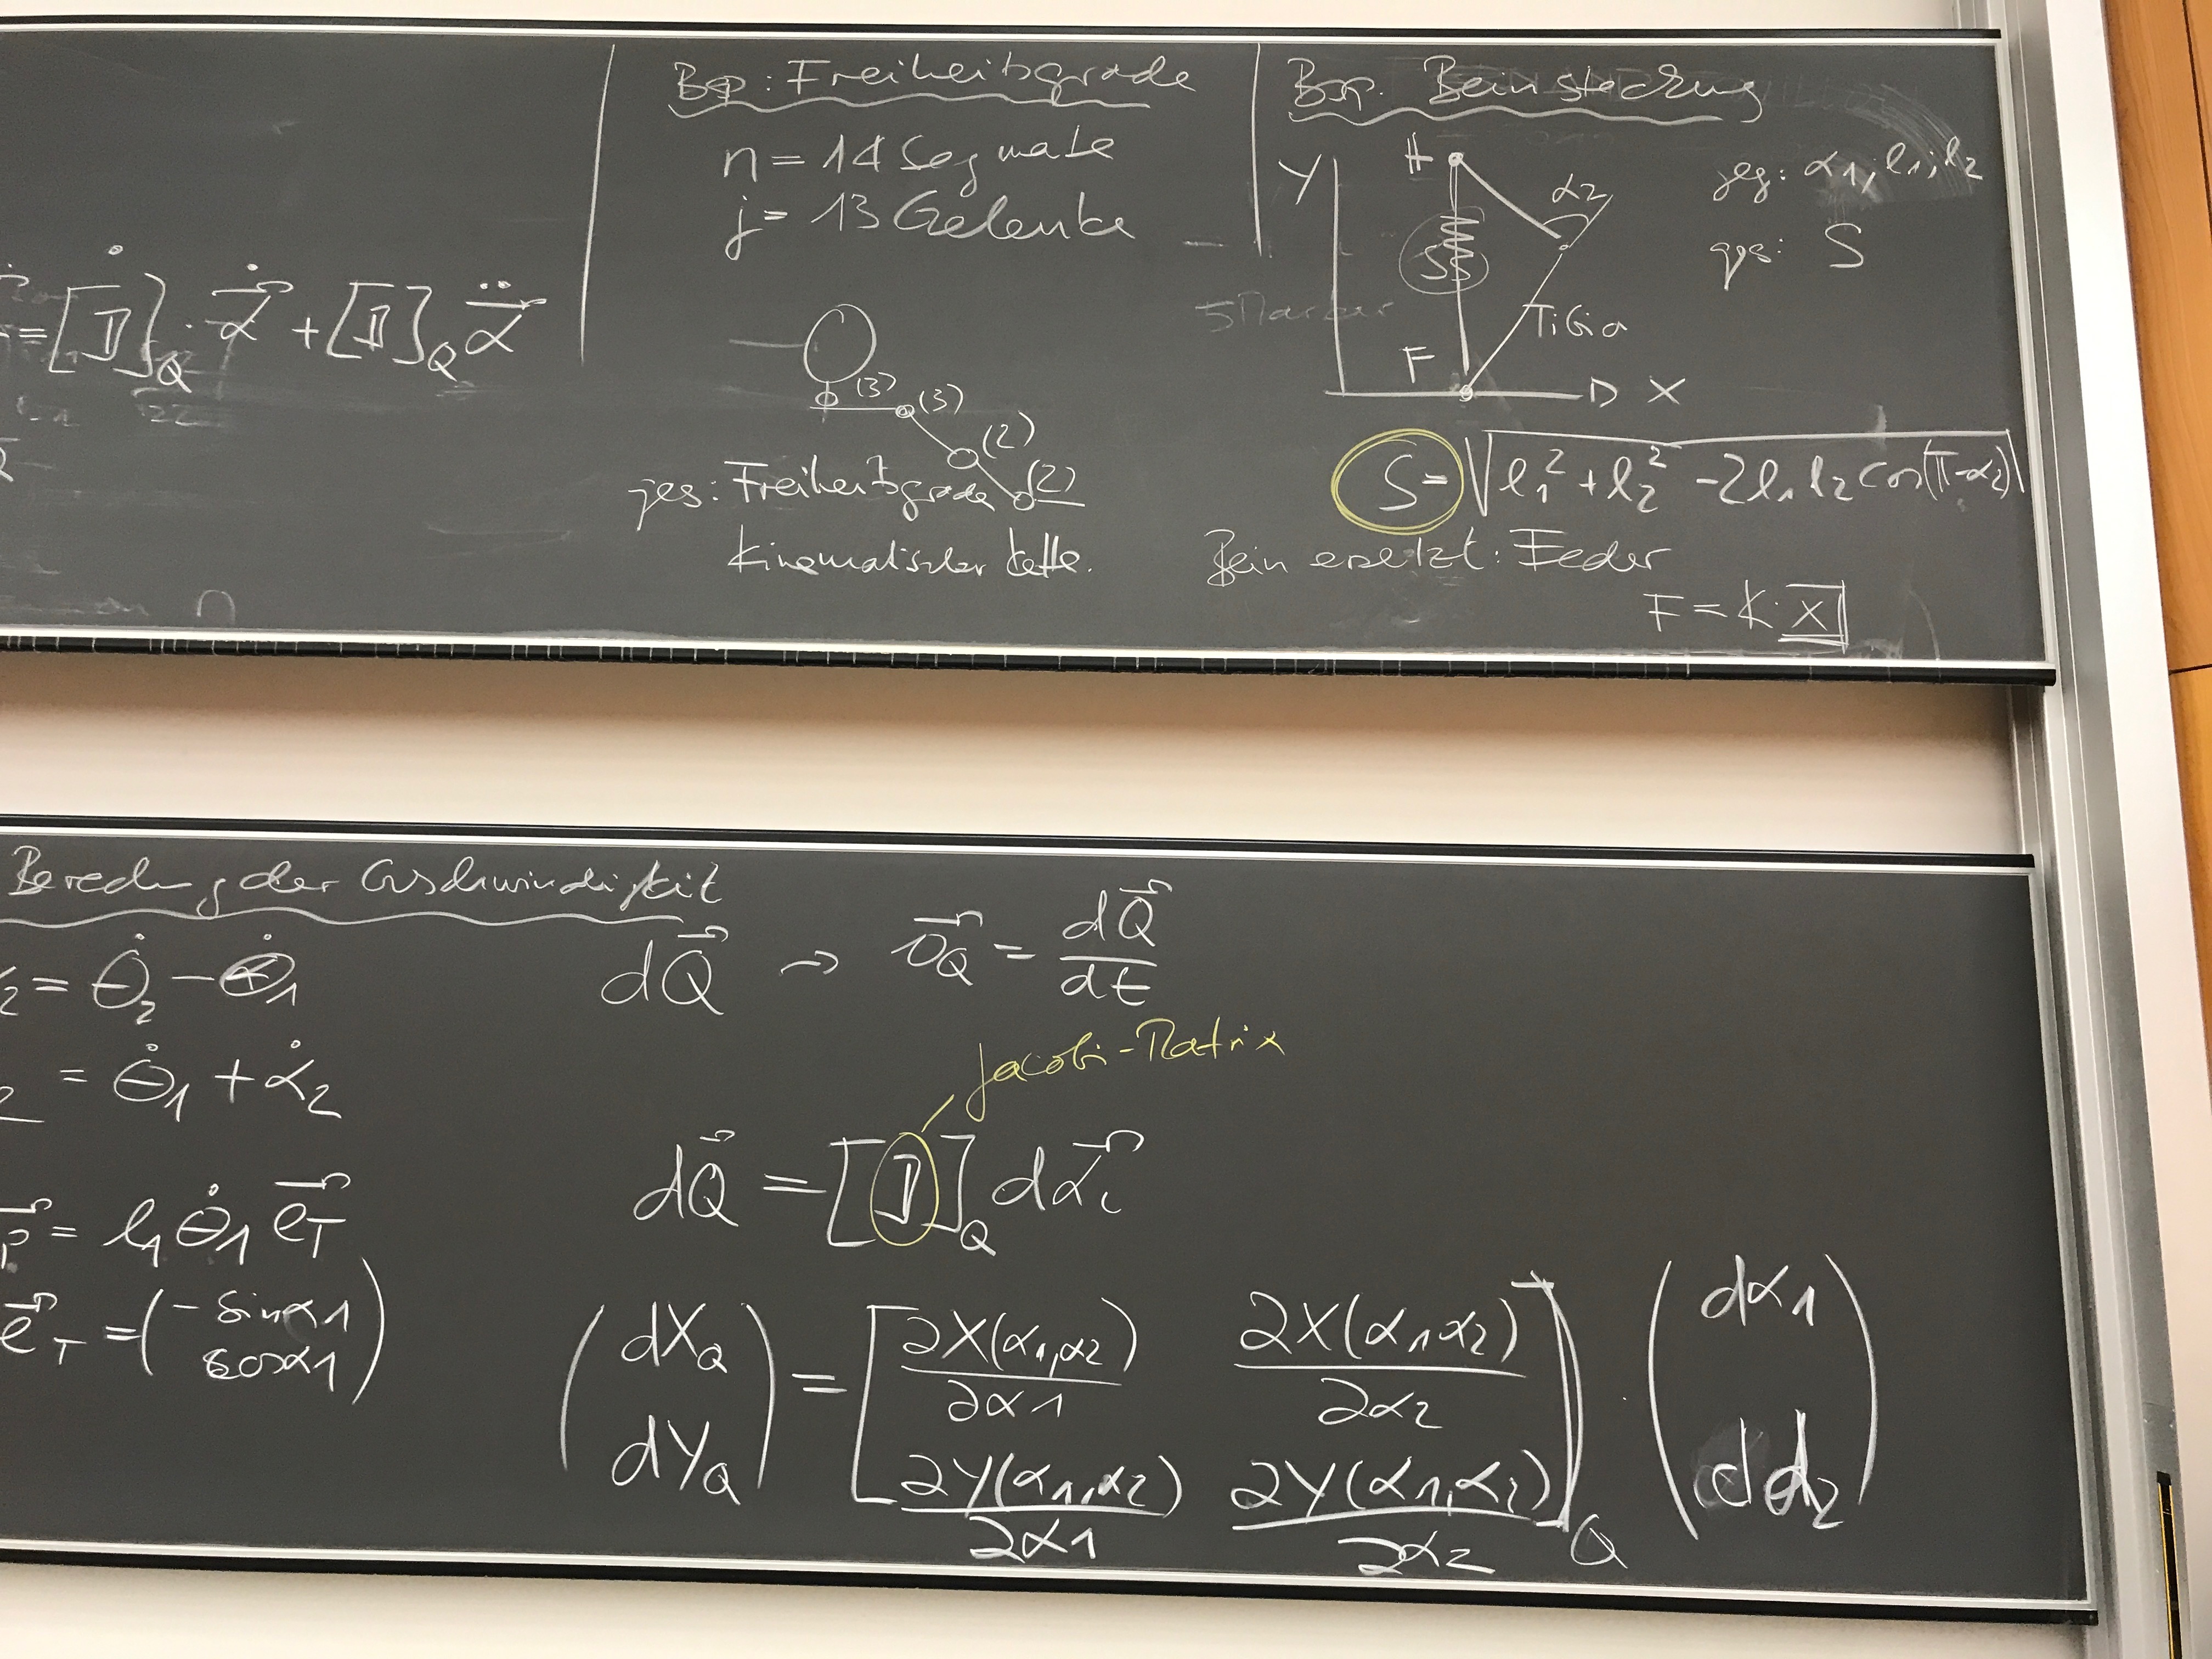 = [J]_Q · α⃗̇ + [J]_Q α⃗̈
Bsp: Freiheitsgrade
n = 14 Segmente
j = 13 Gelenke
(3)
(3)
(2)
(2)
ges: Freiheitsgrade
kinematischer Kette.
Bsp. Beinsteckung
Y
H
α2
S
Tibia
F
X
geg: α1, l1, l2
ges: S
5 Marker
S = √(l₁² + l₂² - 2l₁ l₂ cos(π-α₂))
Bein ersetzt: Feder
F = k · x
Berechnung der Geschwindigkeit
₂ = θ̇₂ - θ̇₁
₂ = θ̇₁ + α̇₂
P = l₁ θ̇₁ e⃗_T
e⃗_T = (-sinα1
cosα1)
dQ⃗ → v⃗_Q = dQ⃗/dt
Jacobi-Matrix
dQ⃗ = [J]_Q dα⃗ᵢ
(dX_Q = [∂X(α₁,α₂)/∂α1 ∂X(α₁,α₂)/∂α₂ · (dα₁
dY_Q) ∂Y(α₁,α₂)/∂α1 ∂Y(α₁,α₂)/∂α₂]_Q dα₂)